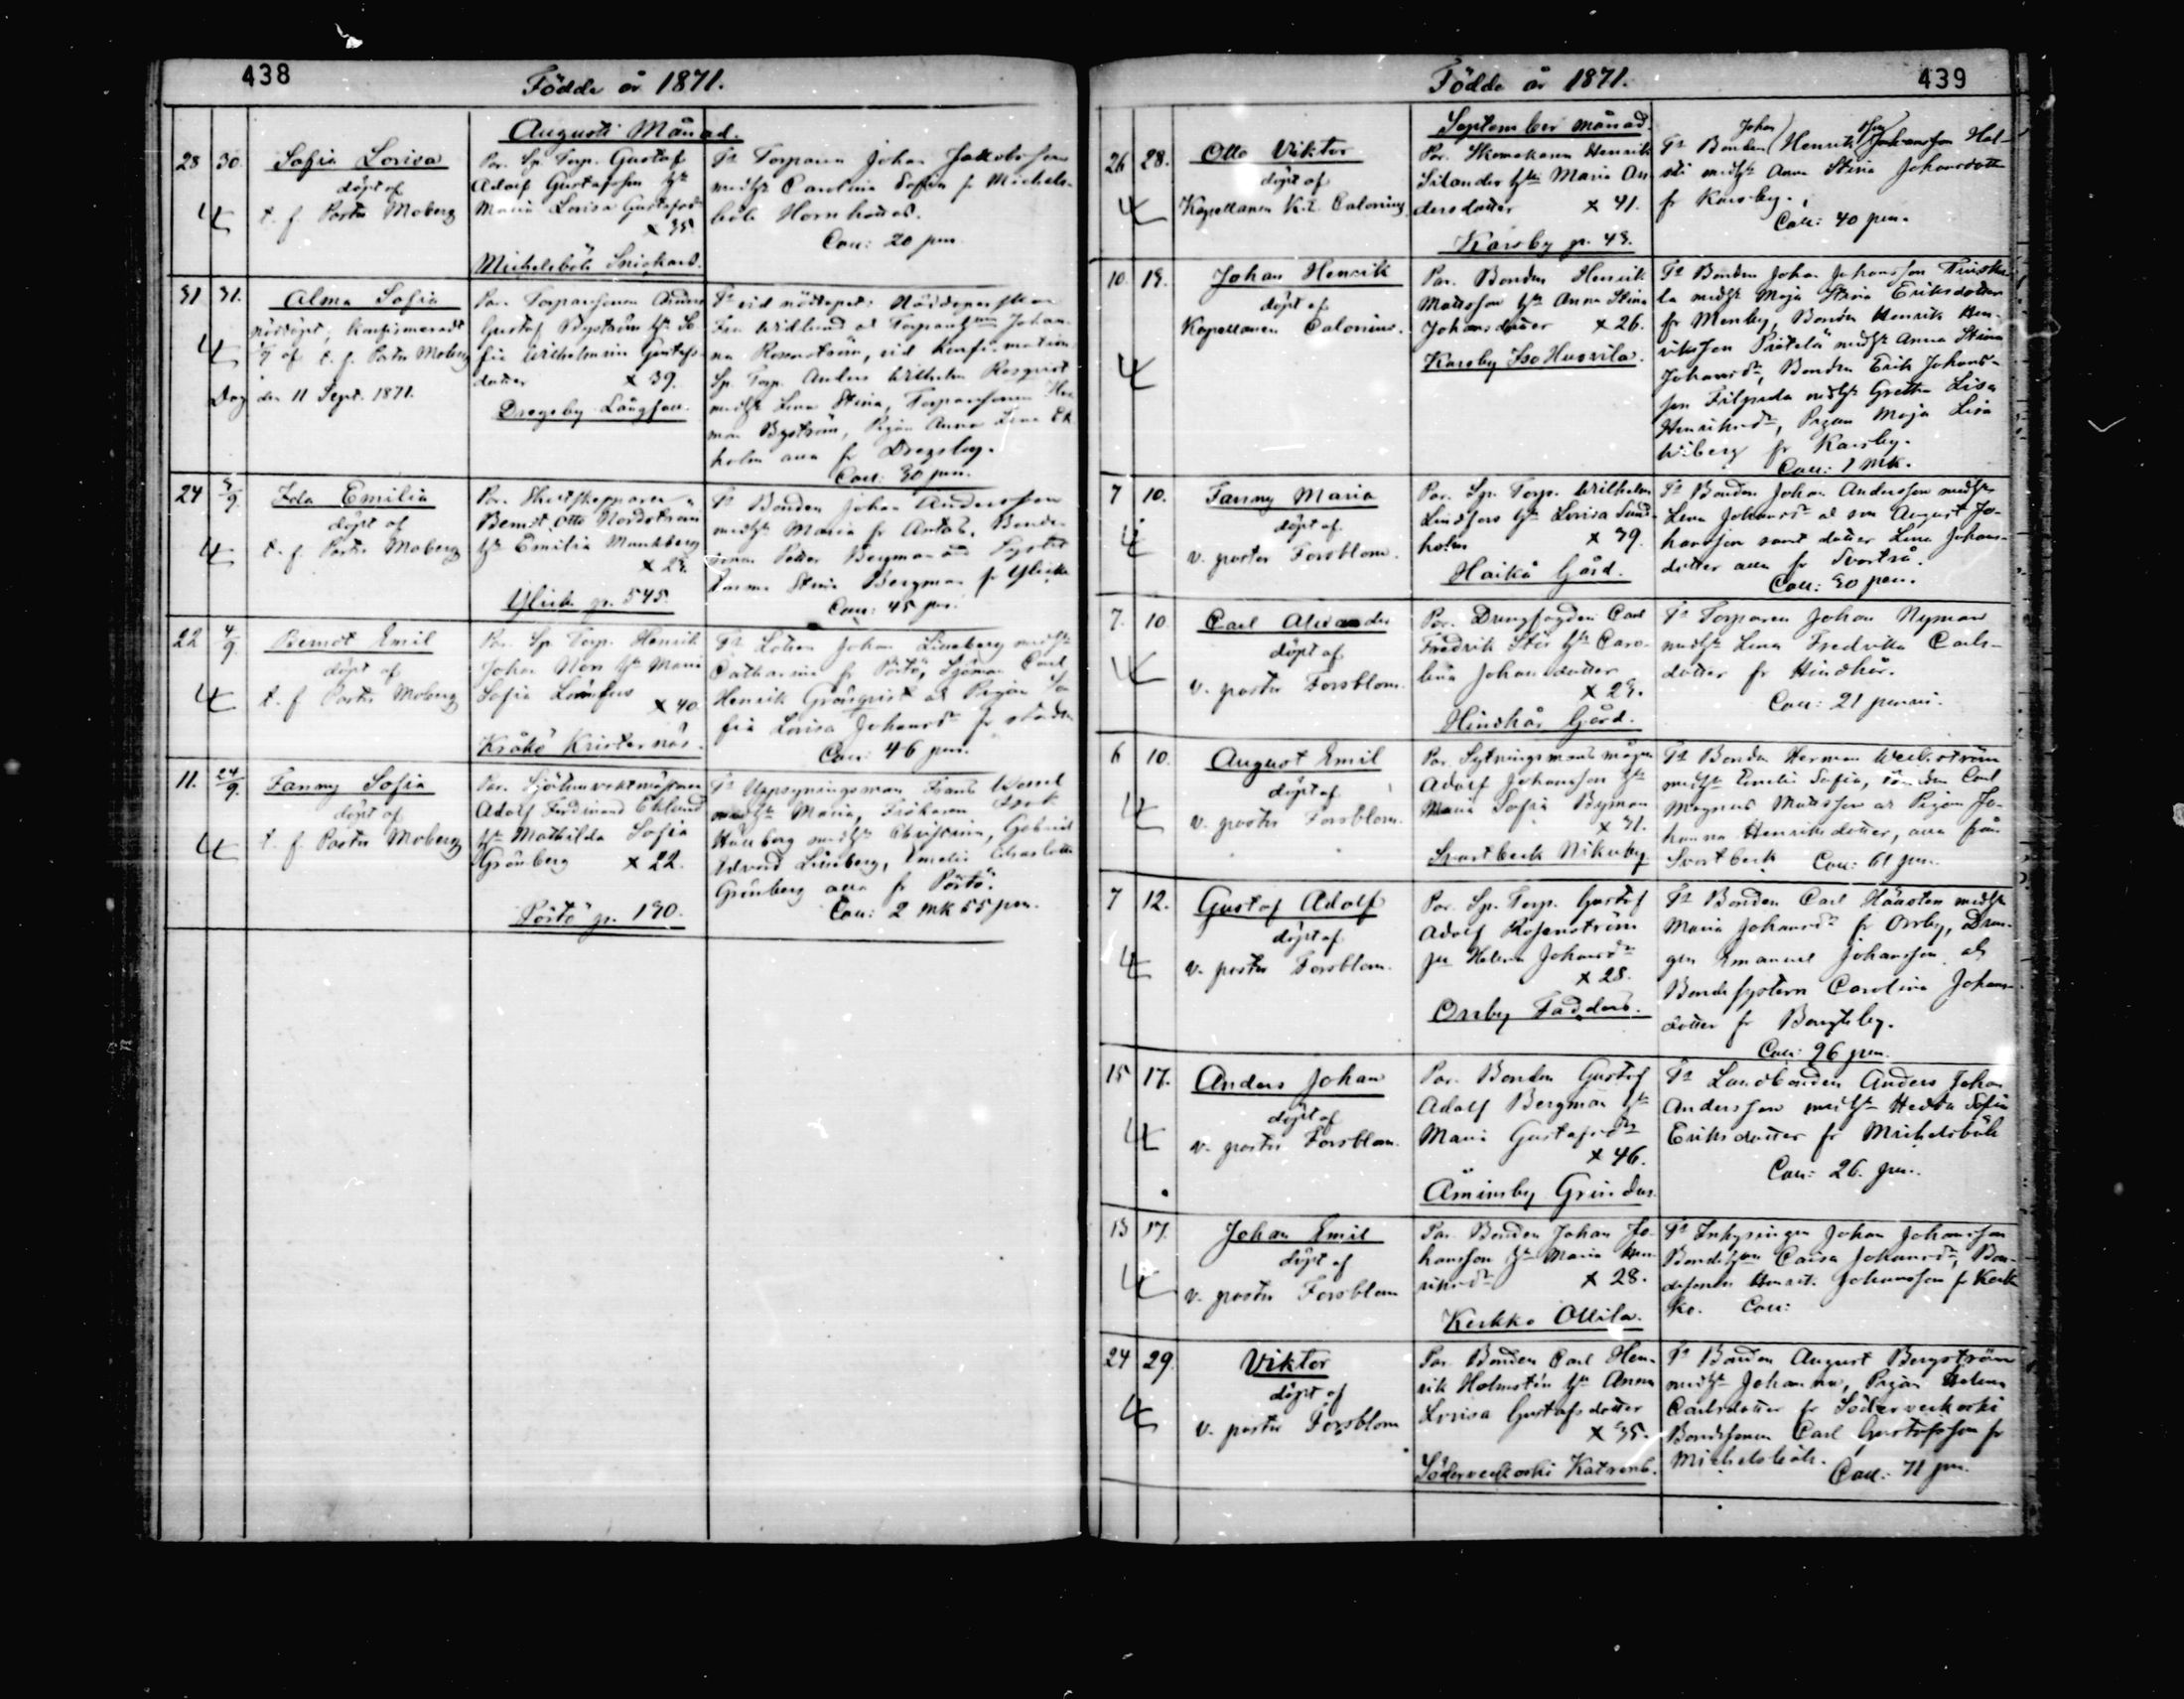 438
Födde år 1871.
Augusti Månad.
28 30. Sofia Lovisa
döpt af
t. f. Pastor Moberg
Par. Sp. Torp. Gustaf
Adolf Gustafsson hu
Maria Lovisa Gustafsd
x 35.
Michelsböle Snickars.
Torparen Johan Jakobsson
medh Carolina Sofia fr Michels-
böle Hornhattas.
Coll: 20 pen.
31 31. Alma Sofia
nöddöpt, konfirmeradt
af t. f. Pastor Moberg
Dog den 11 Sept. 1871.
Par. Torparesonen Anders
Gustaf Byström hu So-
fia Wilhelmina Gustafs-
dotter x 39.
Drägsby Långsan.
vid nöddopet:
Widlund o Torparehun Johan-
na Rosenström, vid konfirmation
Sp. Torp. Anders Wilhelm Rosqvist
medh Lena Stina, Torparesonen Her-
man Byström, Pigan Anna Lena Ek-
holm alla fr Drägsby.
Coll: 30 pen.
24 3/9. Ida Emilia
döpt af
t. f. Pastor Moberg
Par. Skeppsskepparen
Berndt Otto Nordström
hu Emilia Munkberg
Ylike p. 545.
Bonden Johan Andersson
medh Maria fr Antas, Bonde-
sonen Petter Bergman och Syster
Stina Bergman fr Ylike
Coll: 45 pen.
22 4/9. Berndt Emil
döpt af
t. f. Pastor Moberg
Par. Sp. Torp. Henrik
Johan hu Maria
Sofia
x 40.
Kråkö Kristernäs.
Lotsen Johan Lineberg medh
Catharina fr Pörtö, Sjöman Carl
Henrik Grönqvist o Pigan So-
fia Lovisa Johansd fr staden
Coll: 46 pen.
11. 24/9. Fanny Sofia
döpt af
t. f. Pastor Moberg
Par.
Adolf Ferdinand Eklund
hu Mathilda Sofia
Grönberg x 22.
Pörtö p. 190.
Uppsyningsman Frans
medh Maria, Fiskaren Isak
medh Christina, Gabriel
Edvard Lineberg, Emelie Charlotta
Grönberg alla fr Pörtö.
Coll: 2 mk 55 pen.
Födde år 1871.
439
September månad.
26 28. Otto Viktor
döpt af
Kapellanen K. L. Calonius
Par. Skomakaren Henrik
Silander hu Maria An-
dersdotter x 41.
Karsby p. 43.
Bonden Johan Henriksson Hal-
medh Anna Stina Johansdotter
fr Karsby.
Coll: 40 pen.
10. 19. Johan Henrik
döpt af
Kapellanen Calonius.
Par. Bonden Henrik
Mattsson hu Anna Stina
Johansdotter x 26.
Karsby Iso Husvila.
Bonden Johan Johansson
la medh Maja Stina Eriksdotter
fr Menby, Bonden Henrik Hen-
riksson Prätelä medh Anna Stina
Johansd, Bonden Erik Johans-
son Filpula medh Gretha Lisa
Henriksd, Pigan Maja Lisa
Wiberg fr Karsby.
Coll: 1 mk.
7 10. Fanny Maria
döpt af
v. pastor Forsblom.
Par. Sp. Torp. Wilhelm
Lindfors hu Lovisa Sund-
holm x 39.
Haikå Gård.
Bonden Johan Andersson medh
Lena Johansd o son August Jo-
hansson samt dotter Lena Johans-
dotter alla fr Svartså.
Coll: 30 pen.
7. 10 Carl Alexander
döpt af
v. pastor Forsblom.
Par. Drengfogden Carl
Fredrik Stor hu Caro-
lina Johansdotter
x 29.
Hindhår Gård.
Torparen Johan Nyman
medh Lena Fredrika Carls-
dotter fr Hindhår.
Coll: 21 penni.
6 10. August Emil
döpt af
v. pastor Forsblom.
Par. Sytningsmans mågen
Adolf Johansson hu
Maria Sofia Byman
x 31.
Svartbeck Nikuby
Bonden Herman Weckström
medh Emelie Sofia, Carl
Magnus Mattsson o Pigan Jo-
hanna Henriksdotter, alla från
Svartbeck Coll: 61 pen.
7 12. Gustaf Adolf
döpt af
v. pastor Forsblom.
Par. Sp. Torp. Gustaf
Adolf Rosenström
Helena Johansd
x 28.
Orrby Fadders.
Bonden Carl medh
Maria Johansd fr Orrby, Dren-
gen Emanuel Johansson o
Bondesystern Carolina Johans-
dotter fr Bengtsby.
Coll: 96 pen.
15 17. Anders Johan
döpt af
v. pastor Forsblom.
Par. Bonden Gustaf
Adolf Bergman hu
Maria Gustafsd
x 46.
Åminsby Grindas.
Landbonden Anders Johan
Andersson medh Hedda Sofia
Eriksdotter fr Michelsböle
Coll: 26. pen.
13 17. Johan Emil
döpt af
v. pastor Forsblom
Par. Bonden Johan Jo-
hansson hu Maria Hen-
riksd x 28.
Kerkko Ollila.
Inhysingen Johan Johansson
Caisa Johansd, Bon-
desonen Henrik Johansson fr Kerk-
ko. Coll:
24 29. Viktor
döpt af
v. pastor Forsblom
Par. Bonden Carl Hen-
rik Holmstén hu Anna
Lovisa Gustafsdotter
x 35.
Söderveckoski Katrenb.
Bonden August Bergström
medh Johanna, Pigan Helena
Carlsdotter fr Söderveckoski
Bondesonen Carl Gustafsson fr
Michelsböle.
Coll: 71 pen.